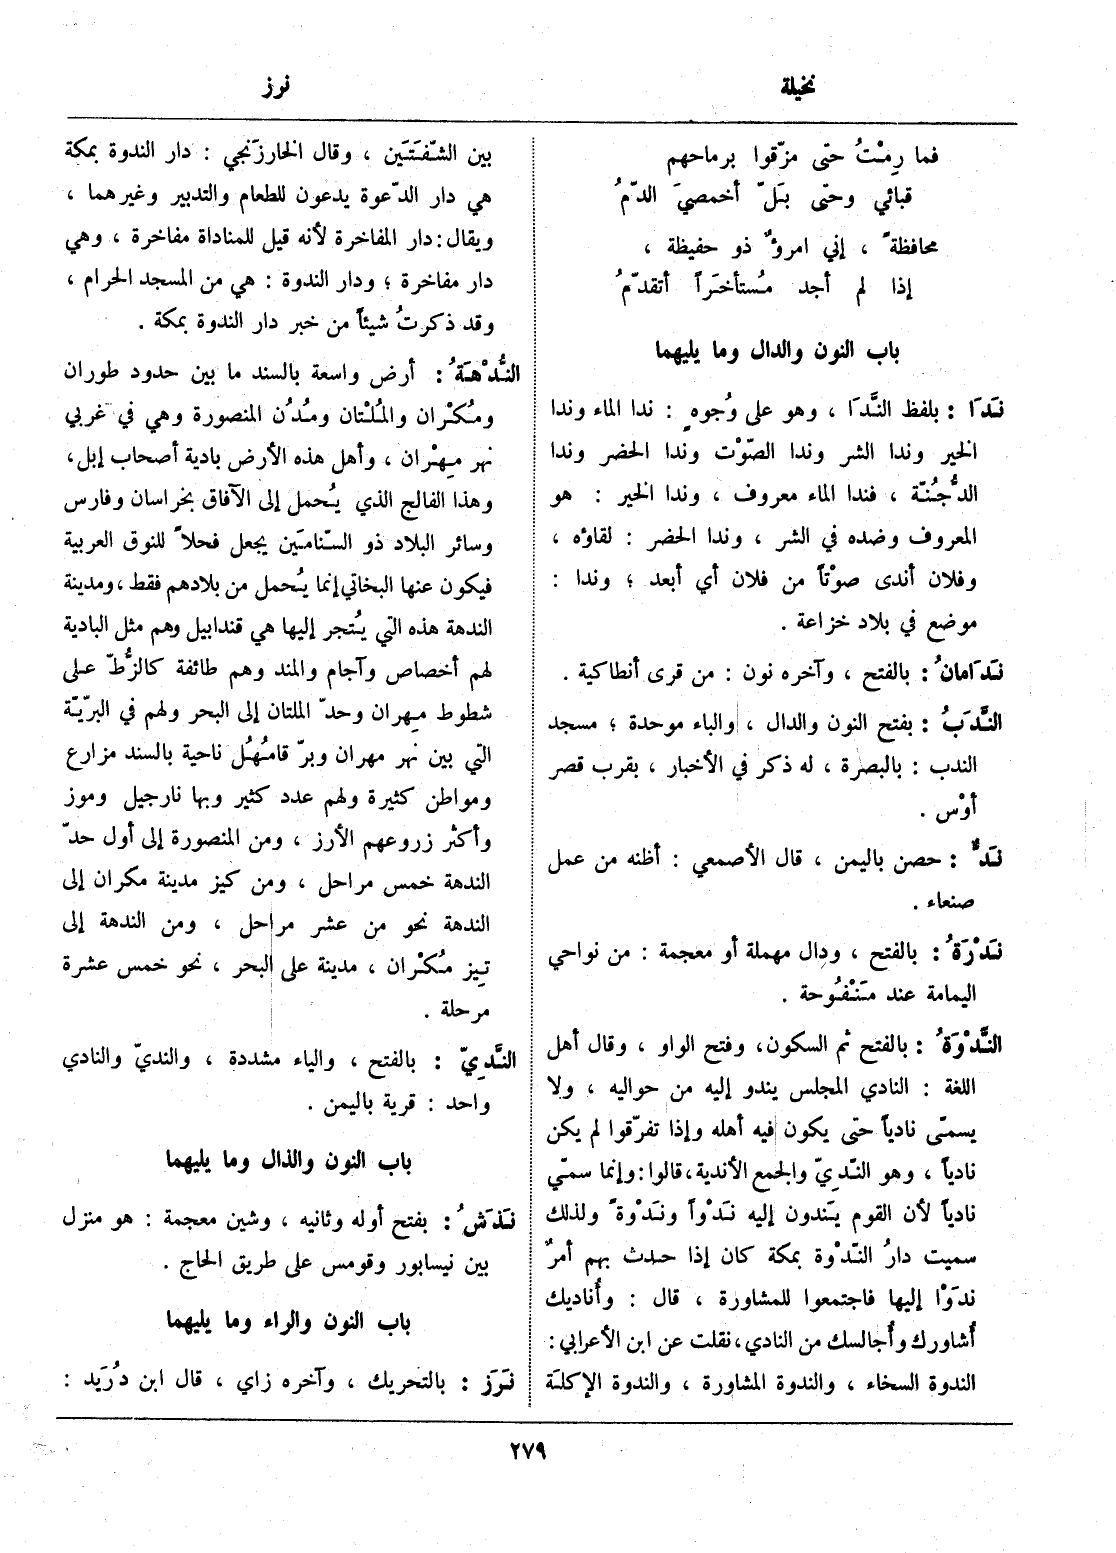 نخيلة
نرز
فما رِمْتُ حتى مزّقوا برماحهم
قبائي وحتى بَلّ أخمصيَ الدّمُ
محافظةً ، إني امرؤٌ ذو حفيظة ،
إذا لم أجد مُستأخَراً أتقدّمُ
باب النون والدال وما يليهما
نَدَا : بلفظ النَّدَا ، وهو على وُجوهٍ : ندا الماء وندا
الخير وندا الشر وندا الصّوْت وندا الحضر وندا
الدُّجُنّة ، فندا الماء معروف ، وندا الخير : هو
المعروف وضده في الشر ، وندا الحضر : لقاؤه ،
وفلان أندى صوْتاً من فلان أي أبعد ؛ وندا :
موضع في بلاد خزاعة .
نَدَامانُ : بالفتح ، وآخره نون : من قرى أنطاكية .
النَّدَبُ : بفتح النون والدال ، والباء موحدة ؛ مسجد
الندب : بالبصرة ، له ذكر في الأخبار ، بقرب قصر
أوْس .
نَدٌّ : حصن باليمن ، قال الأصمعي : أظنه من عمل
صنعاء .
نَدْرَةُ : بالفتح ، ودال مهملة أو معجمة : من نواحي
اليمامة عند مَنْفُوحة .
النَّدْوَةُ : بالفتح ثم السكون، وفتح الواو ، وقال أهل
اللغة : النادي المجلس يندو إليه من حواليه ، ولا
يسمّى نادياً حتى يكون فيه أهله وإذا تفرّقوا لم يكن
نادياً ، وهو النّدِيّ والجمع الأندية، قالوا : وإنما سمّي
نادياً لأن القوم يَندون إليه نَدْواً ونَدْوةً ولذلك
سميت دارُ النّدْوة بمكة كان إذا حدث بهم أمرٌ
ندَوْا إليها فاجتمعوا للمشاورة ، قال : وأُناديك
أُشاورك وأُجالسك من النادي، نقلت عن ابن الأعرابي :
الندوة السخاء ، والندوة المشاورة ، والندوة الإكلة
بين الشّفَتَين ، وقال الخارزَنجي : دار الندوة بمكة
هي دار الدّعوة يدعون للطعام والتدبير وغيرهما ،
ويقال : دار المفاخرة لأنه قيل للمناداة مفاخرة ، وهي
دار مفاخرة ؛ ودار الندوة : هي من المسجد الحرام ،
وقد ذكرتُ شيئاً من خبر دار الندوة بمكة .
النُّدْهَةُ : أرض واسعة بالسند ما بين حدود طوران
ومُكْران والمُلْتان ومُدُن المنصورة وهي في غربي
نهر مِهْران ، وأهل هذه الأرض بادية أصحاب إبل،
وهذا الفالج الذي يُحمل إلى الآفاق بخراسان وفارس
وسائر البلاد ذو السّنامَين يجعل فحلاً للنوق العربية
فيكون عنها البخاتي إنما يُحمل من بلادهم فقط ، ومدينة
الندهة هذه التي يُتجر إليها هي قندابيل وهم مثل البادية
لهم أخصاص وآجام والمند وهم طائفة كالزُّطّ على
شطوط مِهران وحدّ الملتان إلى البحر ولهم في البرّيّة
التي بين نهر مهران وبرّ قامُهُل ناحية بالسند مزارع
ومواطن كثيرة ولهم عدد كثير وبها نارجيل وموز
وأكثر زروعهم الأرز ، ومن المنصورة إلى أول حدّ
الندهة خمس مراحل ، ومن كيز مدينة مكران إلى
الندهة نحو من عشر مراحل ، ومن الندهة إلى
تِيز مُكْران ، مدينة على البحر ، نحو خمس عشرة
مرحلة .
النَّدِيّ : بالفتح ، والياء مشددة ، والنديّ والنادي
واحد : قرية باليمن .
باب النون والذال وما يليهما
نَذَشُ : بفتح أوله وثانيه ، وشين معجمة : هو منزل
بين نيسابور وقومس على طريق الحاج .
باب النون والراء وما يليهما
نَرَز : بالتحريك ، وآخره زاي ، قال ابن دُرَيد :
٢٧٩